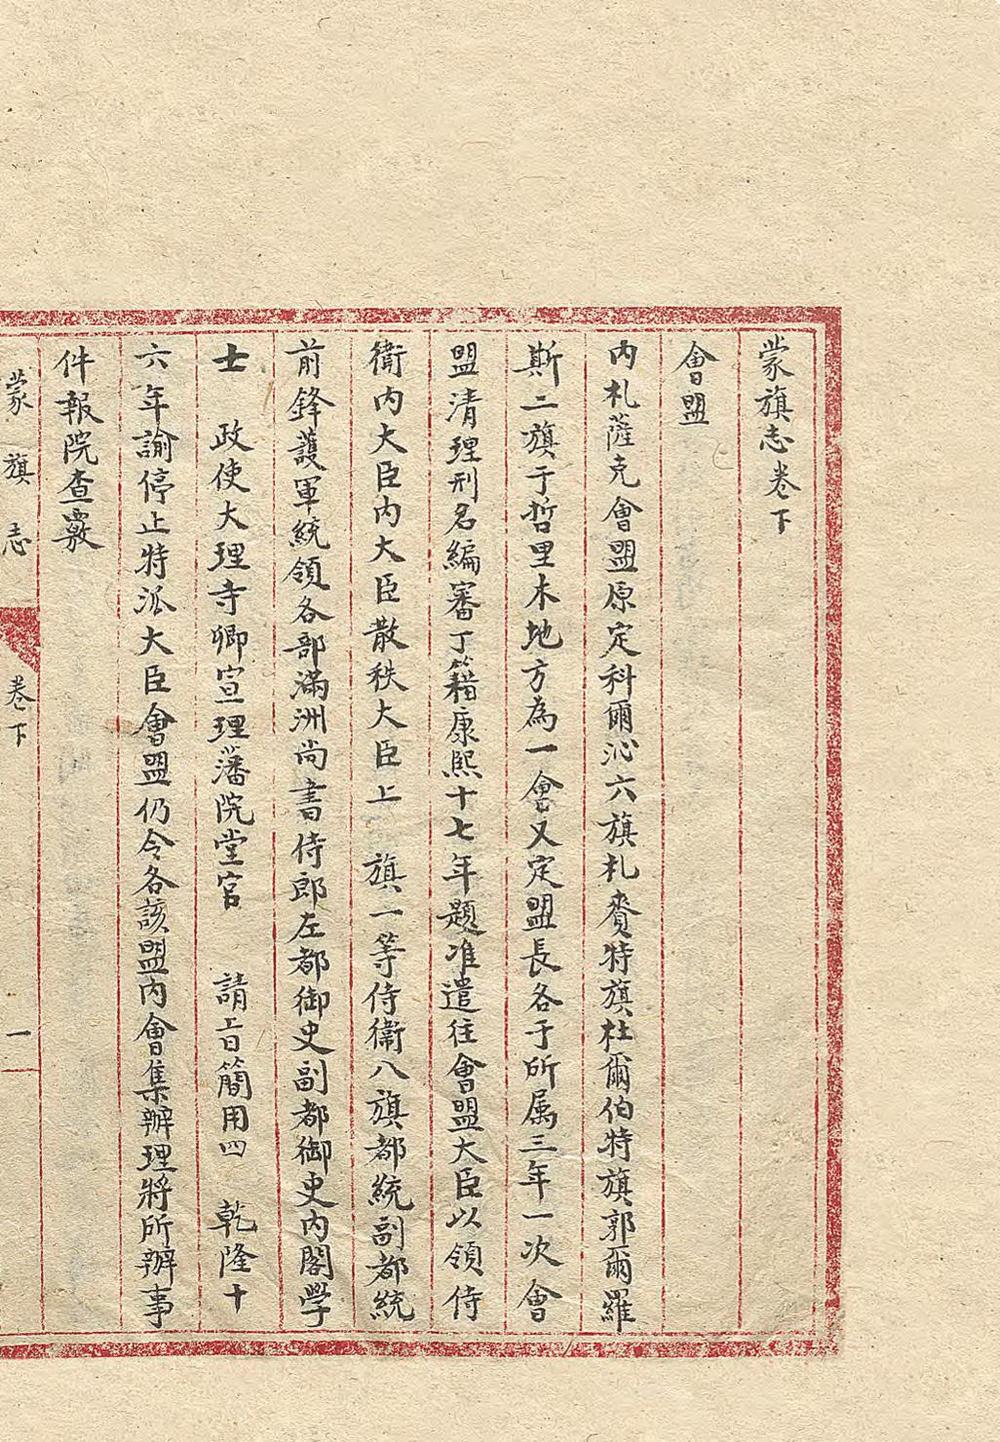 蒙旗志卷下
會盟
內札薩克會盟原定科爾沁六旗札賚特旗杜爾伯特旗郭爾羅
斯二旗于哲里木地方為一會又定盟長各于所属三年一次會
盟清理刑名編審丁籍康熙十七年題准遣往會盟大臣以領侍
衛內大臣內大臣散秩大臣上 旗一等侍衛八旗都統副都統
前鋒護軍統領各部滿洲尚書侍郎左都御史副都御史內閣學
士 政使大理寺卿宣理藩院堂官 請旨簡用四 乾隆十
六年諭停止特派大臣會盟仍令各該盟內會集辦理將所辦事
件報院查覈
蒙旗志 卷下 一